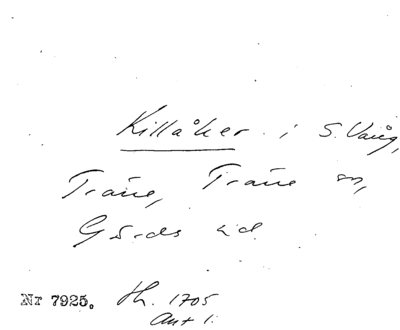 Killåker i S. Vång,
Träne, Träne sn,
Gärds hd.
Nr 7925. Hh. 1705
Ant 1.